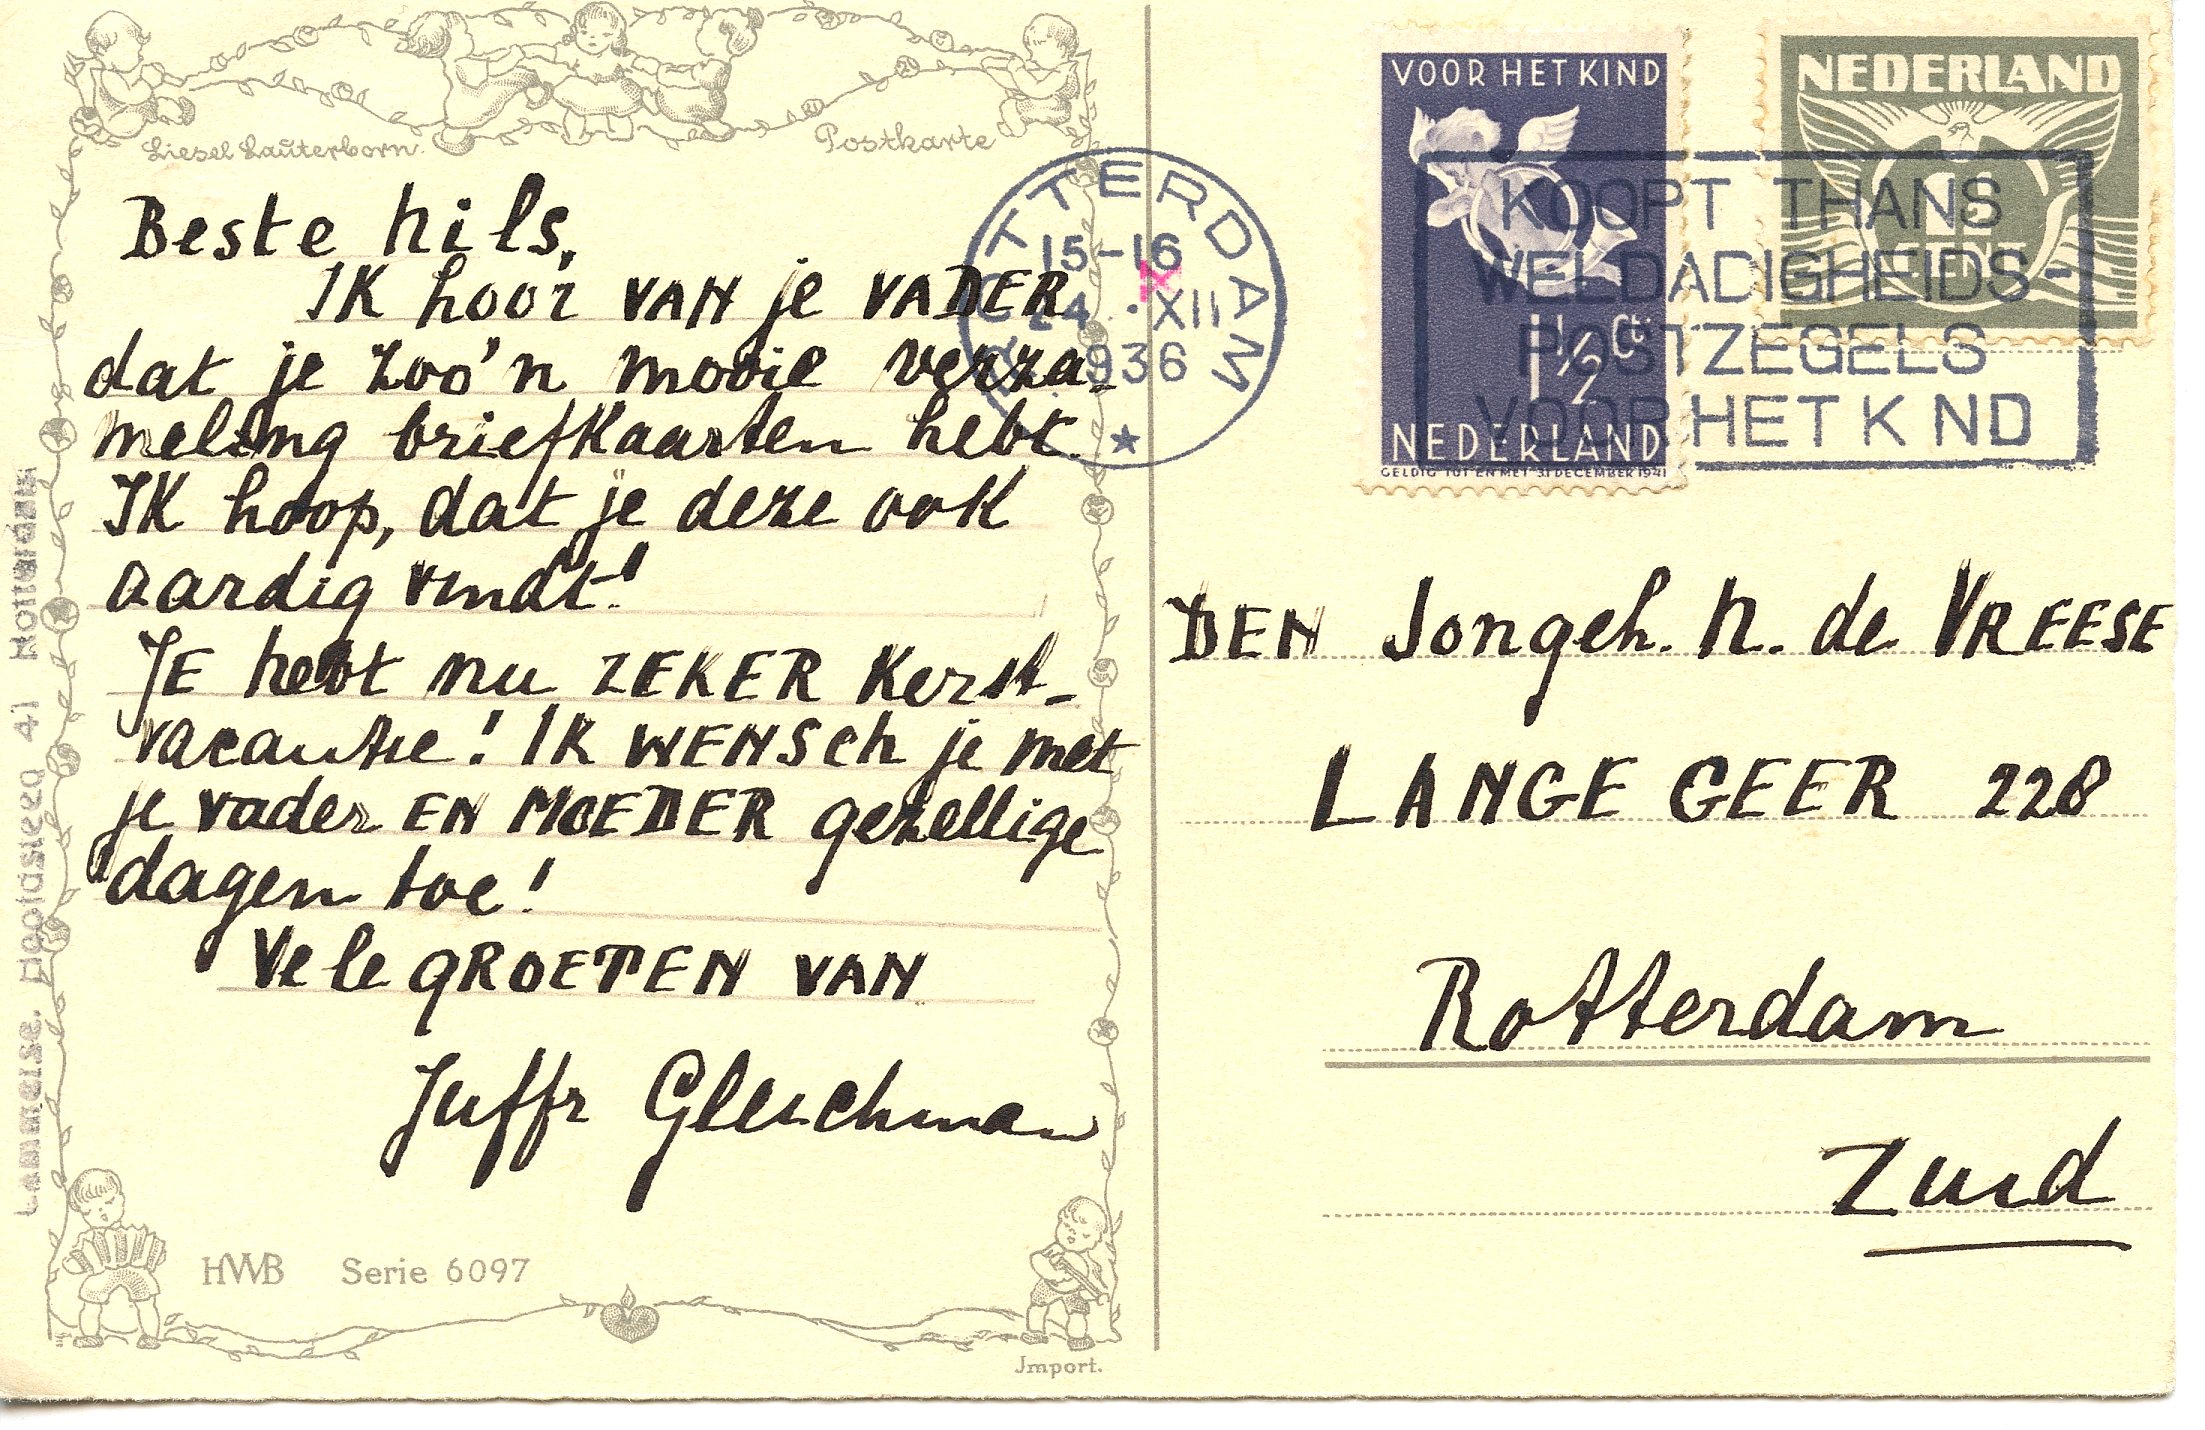 Liesel Lauterborn. Postkarte
Beste Nils,
Ik hoor van je VADER
dat je zoo'n mooie verza-
meling briefkaarten hebt.
Ik hoop, dat je deze ook
aardig vindt!
JE hebt nu ZEKER Kerst-
vacantie! IK WENSch je met
je vader EN MOEDER gezellige
dagen toe!
Vele GROETEN VAN
Juffr Gleichman
HWB Serie 6097
Jmport.
Lammerse. Rotterdam
ROTTERDAM
15-16
24 ·XII
1936
VOOR HET KIND
1½ Ct.
NEDERLAND
GELDIG TOT EN MET 31 DECEMBER 1941
NEDERLAND
1
CENT
KOOPT THANS
WELDADIGHEIDS-
POSTZEGELS
VOOR HET K ND
DEN Jongeh. N. de VREESE
LANGE GEER 228
Rotterdam
Zuid